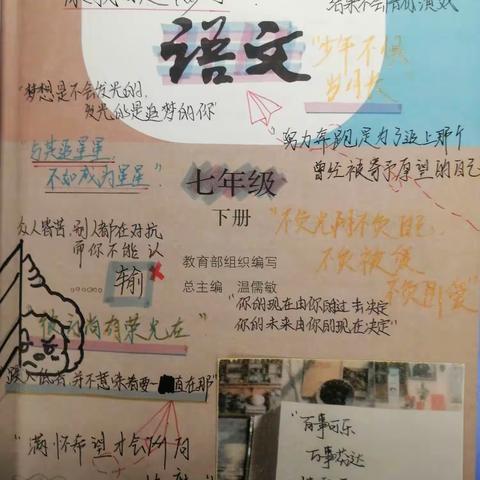 语文
"少年不惧
岁月长"
"梦想是不会发光的,
发光的是追梦的你"
"努力奔跑,只为了追上那个
曾经被寄予厚望的自己
"与其追星星,
不如成为星星"
七年级
下册
众人皆苦,别人都在对抗
而你不能认
……输
"不负光阴不负自己
不负被爱
不负所爱"
教育部组织编写
总主编 温儒敏
"你的现在由你的过去决定
你的未来由你的现在决定"
"彼方尚有荣光在"
跌入低谷,并不意味着要一直在那"
"满怀希望才会所向
"百事可乐
万事芬达